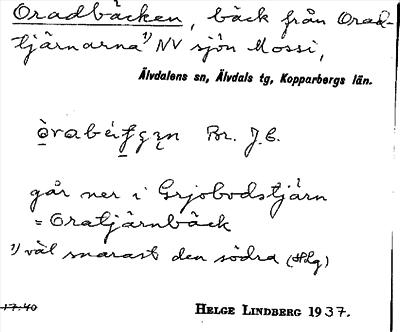 Oradbäcken, bäck från Orad-
tjärnarna 1) NV sjön Mossi,
Älvdalens sn, Älvdals tg, Kopparbergs län.
Br. J.E.
går ner i Grjobodstjärn
= Oratjärnbäck
1) väl snarast den södra (Hlg)
17:40
HELGE LINDBERG 1937.